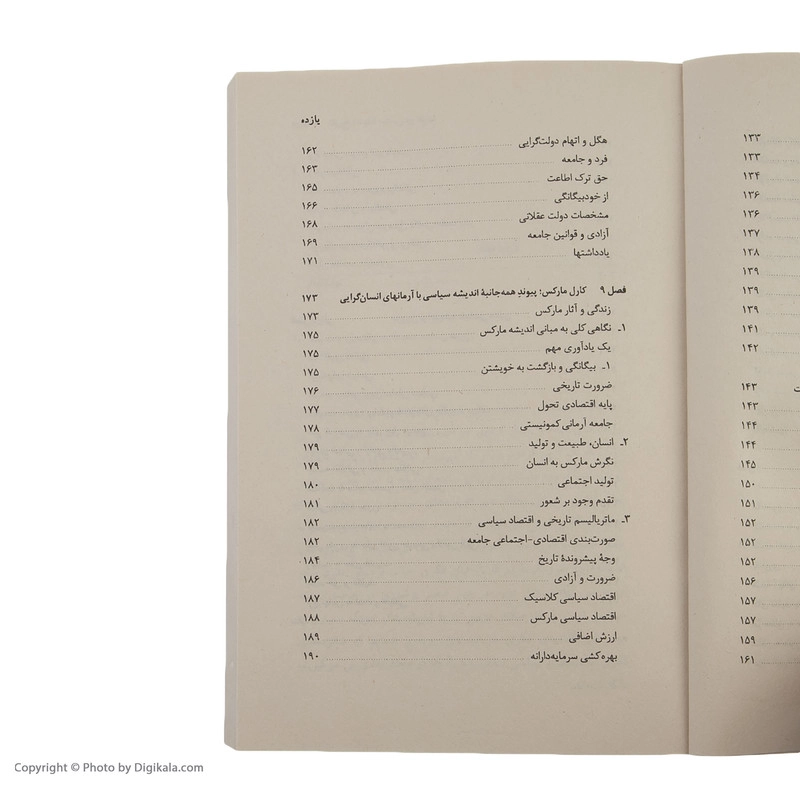 یازده
هگل و اتهام دولت‌گرایی ۱۶۲
فرد و جامعه ۱۶۳
حق ترک اطاعت ۱۶۵
از خودبیگانگی ۱۶۶
مشخصات دولت عقلانی ۱۶۸
آزادی و قوانین جامعه ۱۶۹
یادداشتها ۱۷۱
فصل ۹ کارل مارکس؛ پیوندِ همه‌جانبهٔ اندیشه سیاسی با آرمانهای انسان‌گرایی ۱۷۳
زندگی و آثار مارکس ۱۷۳
۱ـ نگاهی کلی به مبانی اندیشه مارکس ۱۷۵
یک یادآوری مهم ۱۷۵
۱ـ بیگانگی و بازگشت به خویشتن ۱۷۵
ضرورت تاریخی ۱۷۶
پایه اقتصادی تحول ۱۷۷
جامعه آرمانی کمونیستی ۱۷۸
۲ـ انسان، طبیعت و تولید ۱۷۹
نگرش مارکس به انسان ۱۷۹
تولید اجتماعی ۱۸۰
تقدم وجود بر شعور ۱۸۱
۳ـ ماتریالیسم تاریخی و اقتصاد سیاسی ۱۸۲
صورت‌بندی اقتصادی-اجتماعی جامعه ۱۸۲
وجهٔ پیشروندهٔ تاریخ ۱۸۴
ضرورت و آزادی ۱۸۶
اقتصاد سیاسی کلاسیک ۱۸۷
اقتصاد سیاسی مارکس ۱۸۸
ارزش اضافی ۱۸۹
بهره‌کشی سرمایه‌دارانه ۱۹۰
۱۳۳
۱۳۳
۱۳۴
۱۳۶
۱۳۶
۱۳۷
۱۳۸
۱۳۹
۱۳۹
۱۳۹
۱۴۱
۱۴۲
۱۴۳
۱۴۳
۱۴۴
۱۴۴
۱۴۵
۱۵۰
۱۵۱
۱۵۲
۱۵۲
۱۵۲
۱۵۶
۱۵۷
۱۵۷
۱۵۹
۱۶۱
Copyright © Photo by Digikala.com